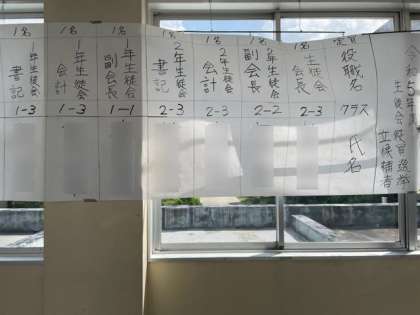 生徒会役員選挙
立候補者
定員 役職名 クラス 氏名
1名 生徒会会長 2-3
1名 2年生徒会副会長 2-2
1名 2年生徒会会計 2-3
1名 2年生徒会書記 2-3
1名 1年生徒会副会長 1-1
1名 1年生徒会会計 1-3
1名 1年生徒会書記 1-3